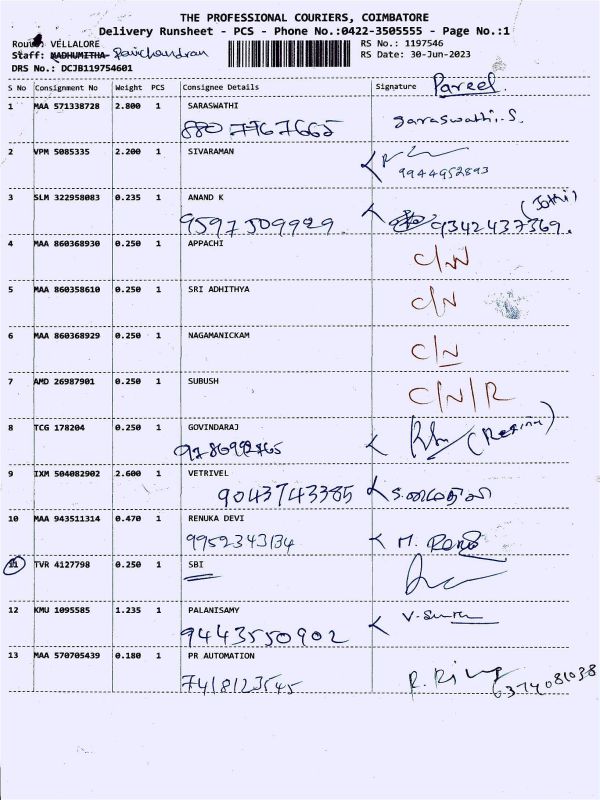 THE PROFESSIONAL COURIERS, COIMBATORE
Delivery Runsheet - PCS - Phone No.:0422-3505555 - Page No.:1
Route: VELLALORE
RS No.: 1197546
Staff: MADHUMITHA Ravichandran
RS Date: 30-Jun-2023
DRS No.: DCJB119754601
S No Consignment No Weight PCS Consignee Details Signature Parcel.
1 MAA 571138728 2.800 1 SARASWATHI
8807767665 Saraswathi.S
2 VPM 5085335 2.200 1 SIVARAMAN
9944952893
3 SLM 322958083 0.235 1 ANAND K (Jothi)
9597509929. 9342437369.
4 MAA 860368930 0.250 1 APPACHI C/N
5 MAA 860358610 0.250 1 SRI ADHITHYA C/N
6 MAA 860368929 0.250 1 NAGAMANICKAM C/N
7 AMD 26987901 0.250 1 SUBUSH C/N/R
8 TCG 178204 0.250 1 GOVINDARAJ
9786992765
9 IXM 504082902 2.600 1 VETRIVEL
9043743385
10 MAA 943511314 0.470 1 RENUKA DEVI
9952343134 M.
11 TVR 4127798 0.250 1 SBI
12 KMU 1095585 1.235 1 PALANISAMY
9443550902
13 MAA 570705439 0.180 1 PR AUTOMATION
7418123545 6374081038